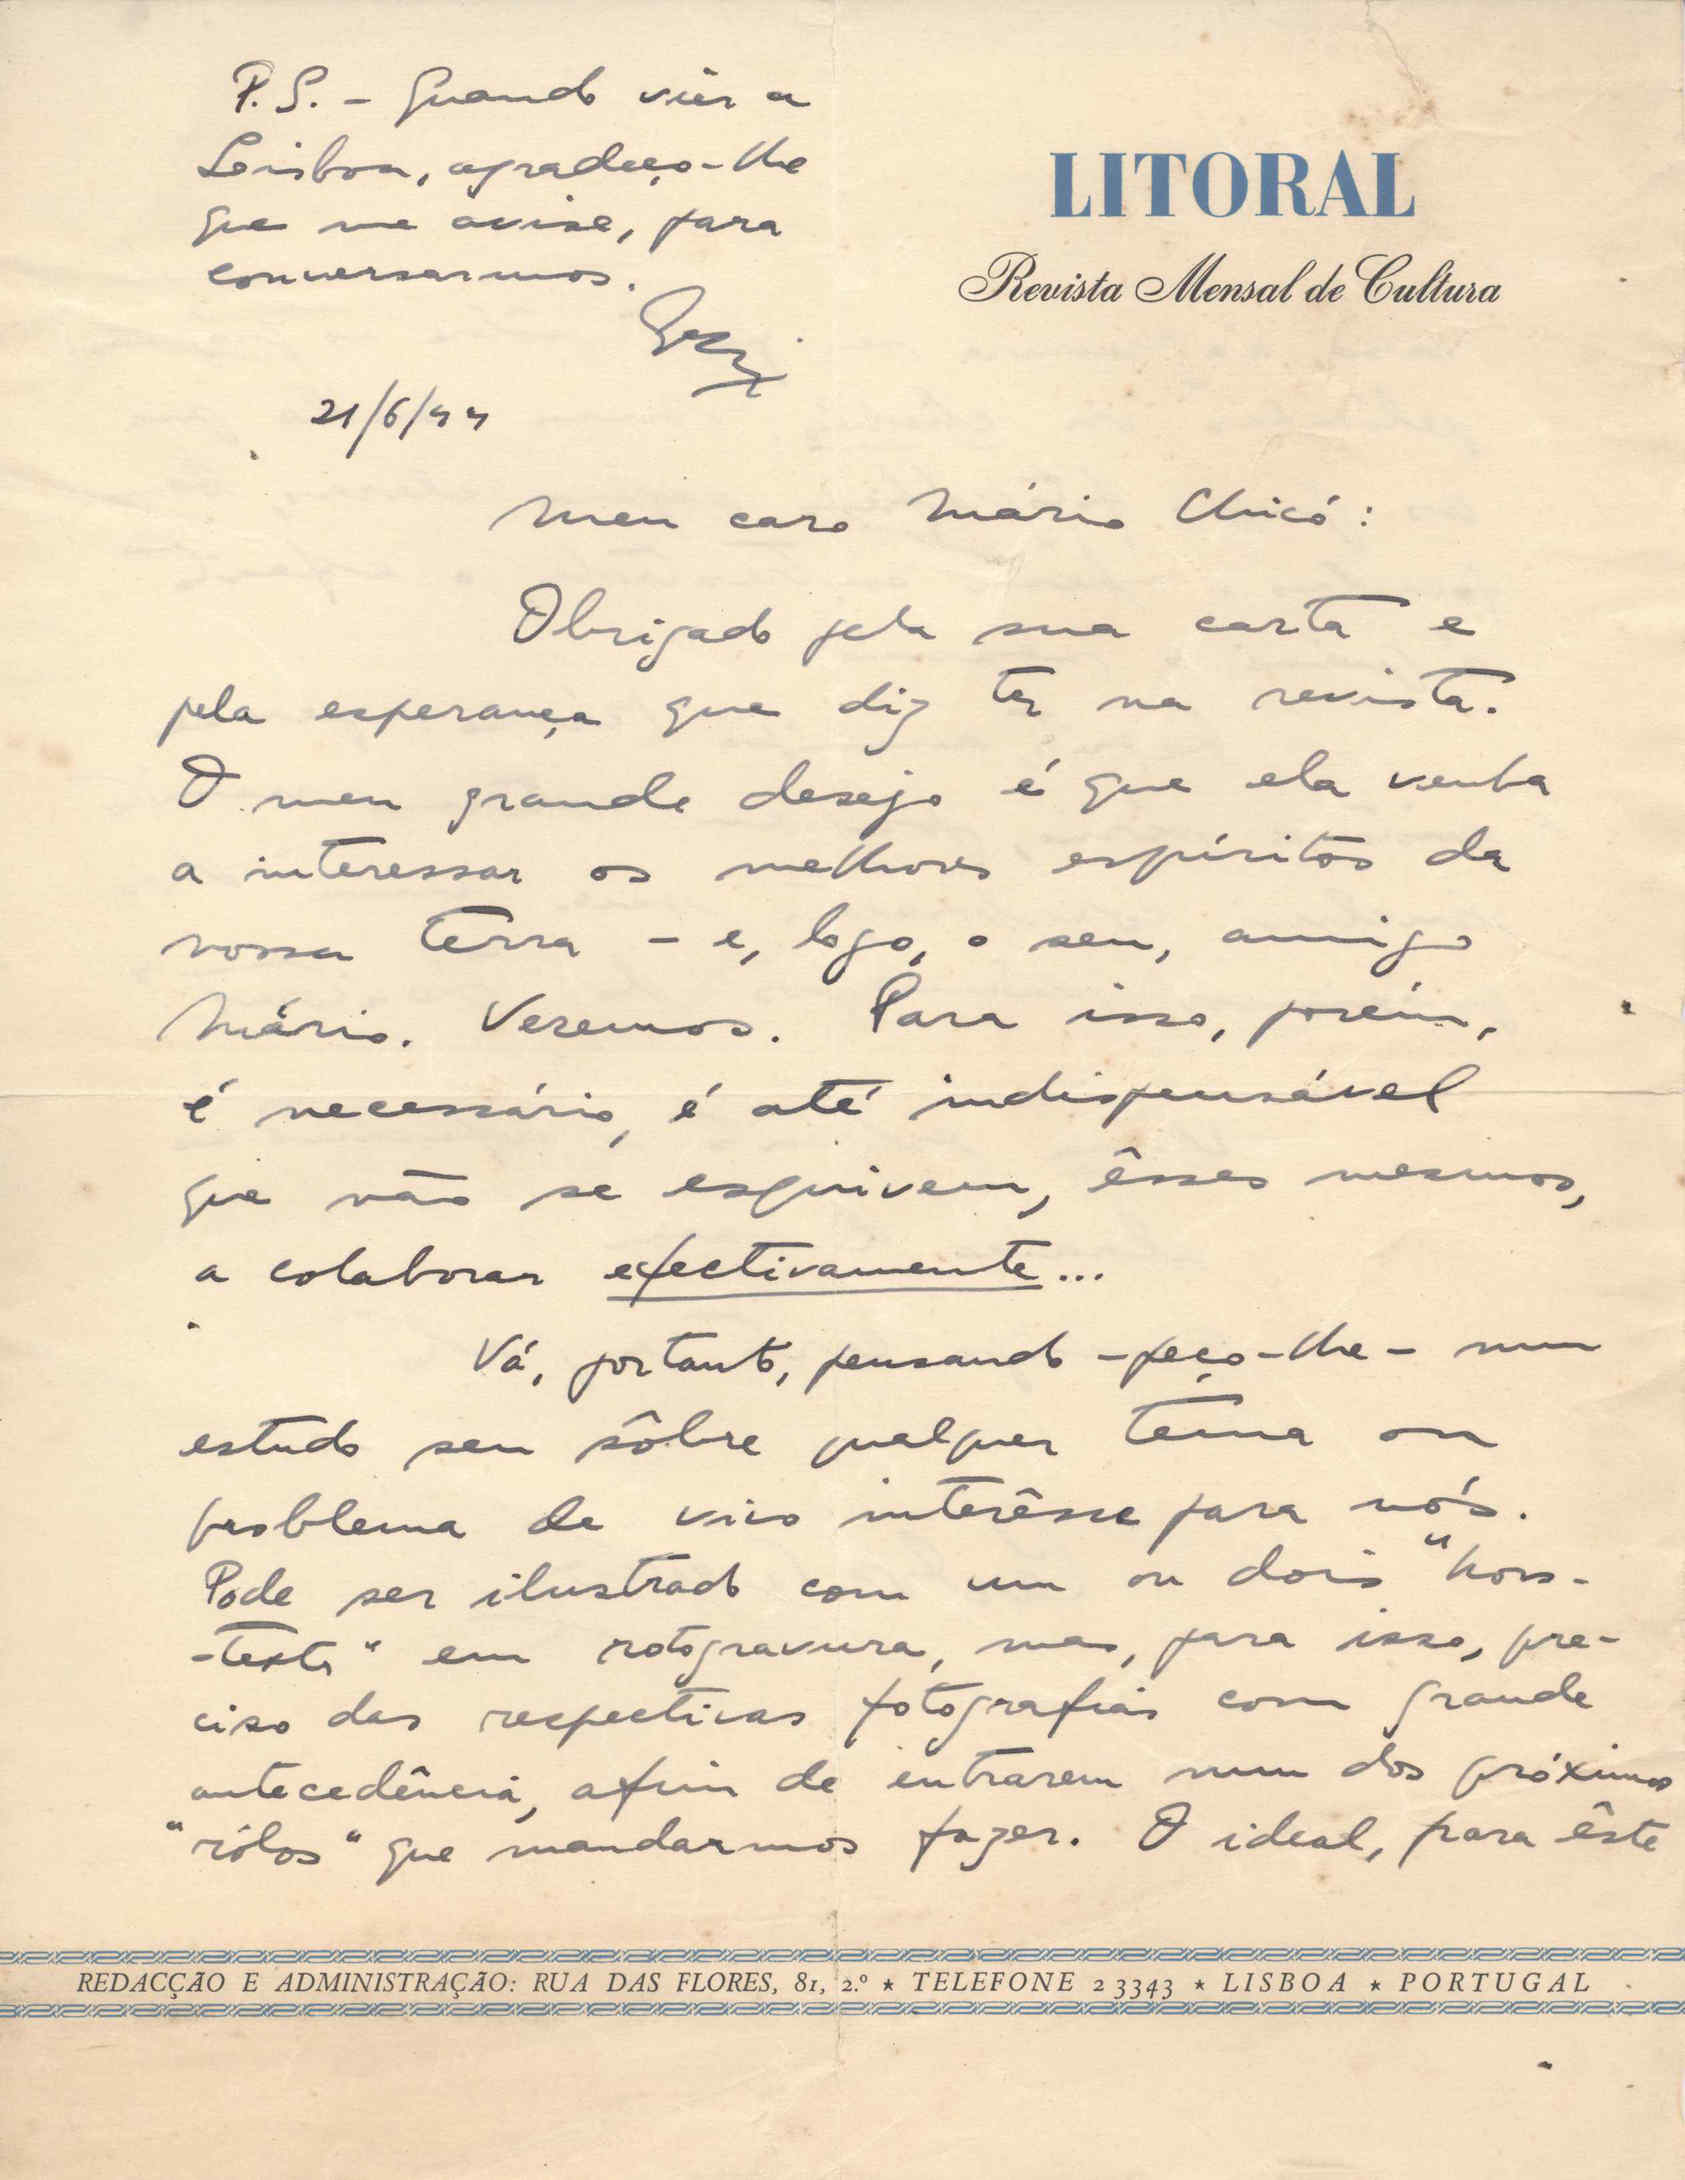 P.S. - Quando vier a
Lisboa, agradeço-lhe
que me avise, para
conversarmos.
21/6/44
LITORAL
Revista Mensal de Cultura
Meu caro Mário Chicó:
Obrigado pela sua carta e
pela esperança que diz ter na revista.
O meu grande desejo é que ela venha
a interessar os melhores espíritos da
nossa terra - e, logo, o seu, amigo
Mário. Veremos. Para isso, porém,
é necessário, é até indispensável
que não se esquivem, êsses mesmos,
a colaborar efectivamente...
Vá, portanto, pensando - peço-lhe - num
estudo seu sôbre qualquer tema ou
problema de vivo interêsse para nós.
Pode ser ilustrado com um ou dois "hors-
-texte" em rotogravura, mas, para isso, pre-
ciso das respectivas fotografias com grande
antecedência, afim de entrarem num dos próximos
"rólos" que mandarmos fazer. O ideal, para êste
REDACÇÃO E ADMINISTRAÇÃO: RUA DAS FLORES, 81, 2.º ★ TELEFONE 2 3343 ★ LISBOA ★ PORTUGAL